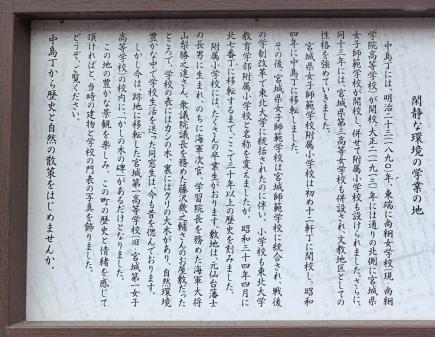 閑静な環境の学業の地
中島丁には、明治二十三(一八九〇)年、東端に尚絅女学校(現、尚絅
学院高等学校)が開校、大正二(一九一三)年には通りの北側に宮城県
女子師範学校が開校し、併せて附属小学校も設けられました。さらに、
同十三年には、宮城県第三高等女学校も併設され、文教地区としての
性格を強めていきました。
宮城県女子師範学校附属小学校は初め十二軒丁に開校し、昭和
四年に中島丁に移転しました。
その後、宮城県女子師範学校は宮城師範学校に統合され、戦後
の学制改革で東北大学に統括されたのに伴い、小学校も東北大学
教育学部附属小学校と名称を変えましたが、昭和三十四年四月に
北七番丁に移転するまで、ここで三十年以上の歴史を刻みました。
附属小学校には、たくさんの卒業生がおります。敷地は、元仙台藩士
の長男に生まれ、のちに海軍次官・学習院長を務めた海軍大将
山梨勝之進さん、衆議院議長も務めた藤沢幾之輔さんのお屋敷だった
ところで、学校の表にはカシの木、裏にはクリの大木があり、自然環境
豊かな中で学校生活を送った同窓生は、今も昔を偲んでおります。
しかし今は、跡地に移転した宮城第一高等学校(旧・宮城第一女子
高等学校)の校内に、「かしの木の碑」があるだけとなりました。
この地の豊かな景観を楽しみ、この町の歴史と情緒を感じて
頂ければと、当時の建物と学校の門表の写真を飾りました。
どうぞ、ご覧ください。
中島丁から歴史と自然の散策をはじめませんか。